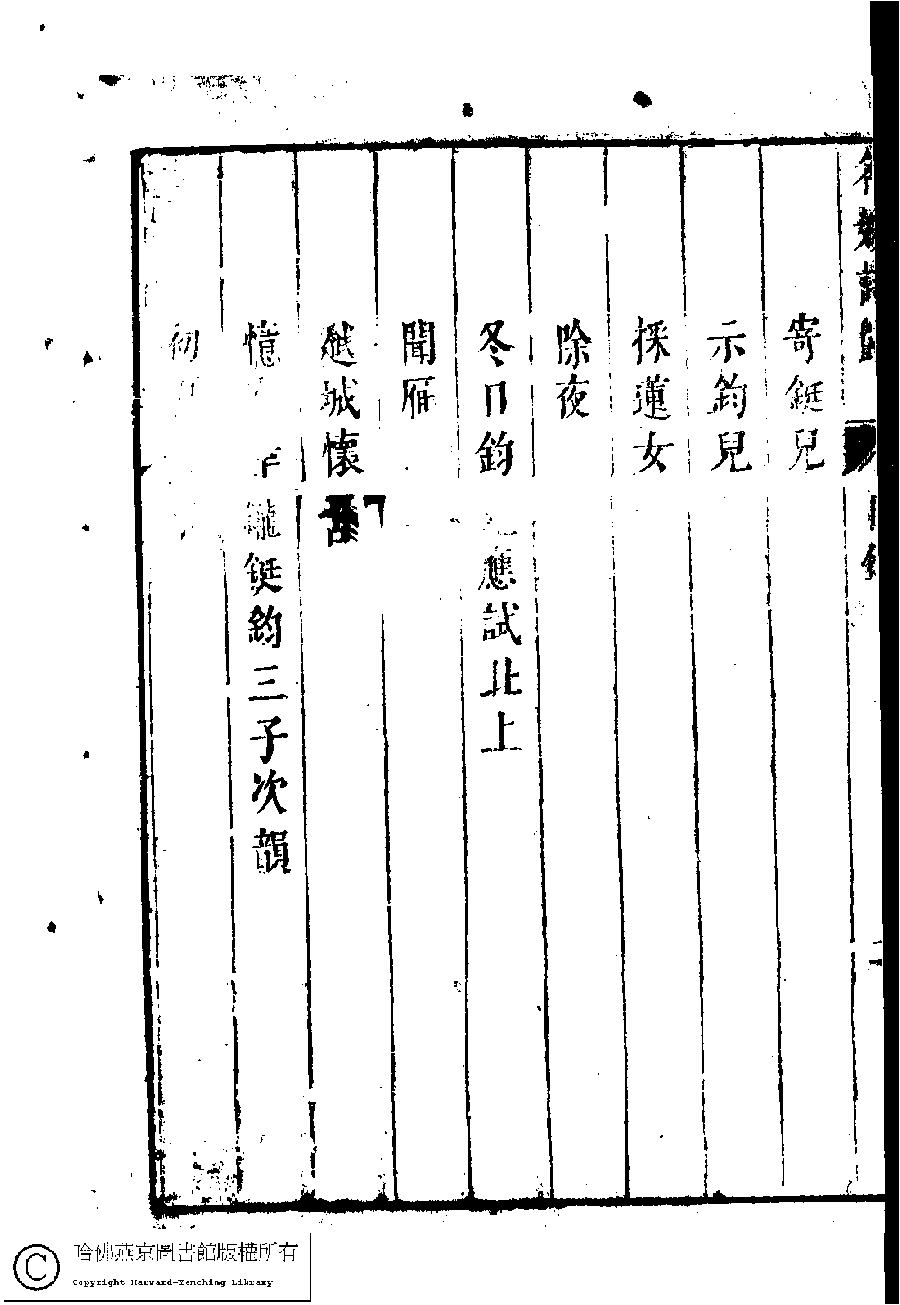 寄鋌兒
示鈞兒
採蓮女
除夜
冬日鈞應試北上
聞雁
越城懷古
憶鑨鋌鈞三子次韻
初
哈佛燕京圖書館版權所有
Copyright Harvard-Yenching Library